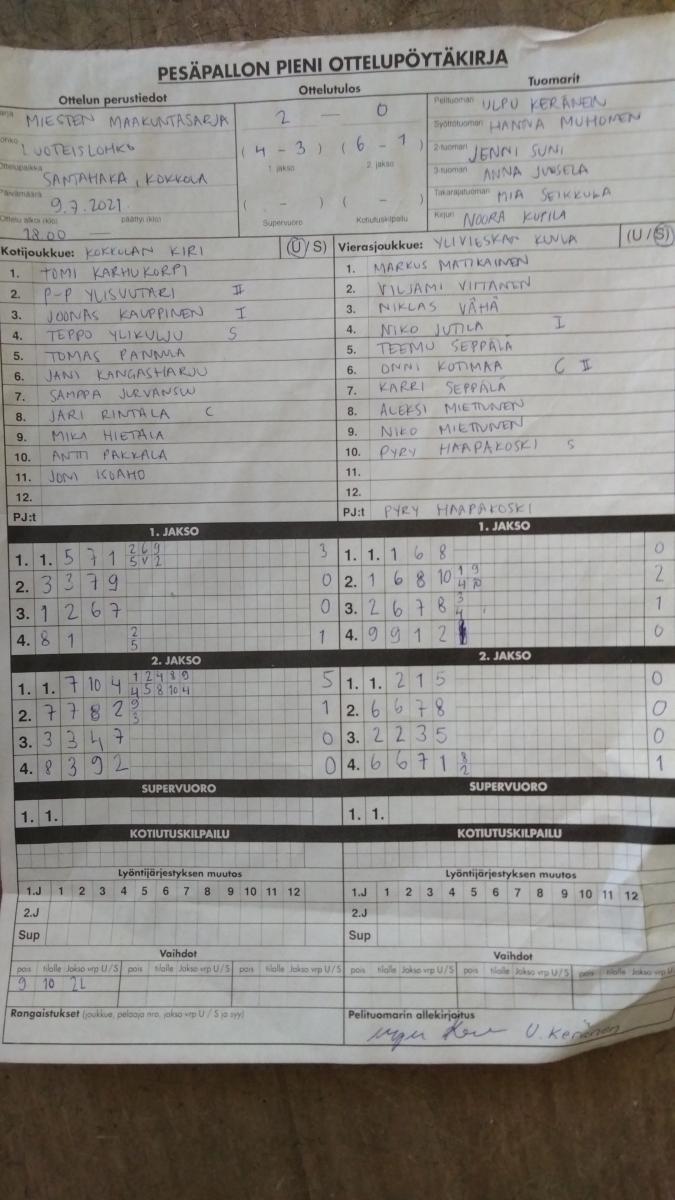 PESÄPALLON PIENI OTTELUPÖYTÄKIRJA
Ottelun perustiedot
MIESTEN MAAKUNTASARJA
LUOTEISLOHKO
Ottelupaikka
SANTAHAKA, KOKKOLA
Päivämäärä
9.7.2021
Ottelu alkoi (klo) päättyi (klo)
18.00 —
Ottelutulos
2 — 0
( 4 - 3 ) ( 6 - 1 )
1. jakso 2. jakso
( - ) ( - )
Supervuoro Kotiutuskilpailu
Tuomarit
Pelituomari ULPU KERÄNEN
Syöttötuomari HANNA MUHONEN
2-tuomari JENNI SUNI
3-tuomari ANNA JUSSELA
Takarajatuomari MIA SEIKKULA
Kirjuri NOORA KUPILA
Kotijoukkue: KOKKOLAN KIRI (U/S)
1. TOMI KARHUKORPI
2. P-P YLISUUTARI II
3. JOONAS KAUPPINEN I
4. TEPPO YLIKULJU S
5. TOMAS PANNULA
6. JANI KANGASHARJU
7. SAMPPA JURVANSUU
8. JARI RINTALA C
9. MIKA HIETALA
10. ANTTI PAKKALA
11. JONI ISOAHO
12.
PJ:t
Vierasjoukkue: YLIVIESKAN KUULA (U/S)
1. MARKUS MATIKAINEN
2. VILJAMI VIITANEN
3. NIKLAS VÄHÄ
4. NIKO JUTILA I
5. TEEMU SEPPÄLÄ
6. ONNI KOTIMAA C II
7. KARRI SEPPÄLÄ
8. ALEKSI MIETTUNEN
9. NIKO MIETTUNEN
10. PYRY HAAPAKOSKI S
11.
12.
PJ:t PYRY HAAPAKOSKI
1. JAKSO
1. 1. 5 7 1 2 6 9 3
5 V 2
2. 3 3 7 9 0
3. 1 2 6 7 0
4. 8 1 2 1
5
2. JAKSO
1. 1. 7 10 4 1 2 4 8 9 5
4 5 8 10 4
2. 7 7 8 2 9 1
3
3. 3 3 4 7 0
4. 8 3 9 2 0
SUPERVUORO
1. 1.
KOTIUTUSKILPAILU
1. JAKSO
1. 1. 1 6 8 0
2. 1 6 8 10 1 9 2
4 10
3. 2 6 7 8 3 1
4
4. 9 9 1 2 0
2. JAKSO
1. 1. 2 1 5 0
2. 6 6 7 8 0
3. 2 2 3 5 0
4. 6 6 7 1 8 1
2
SUPERVUORO
1. 1.
KOTIUTUSKILPAILU
Lyöntijärjestyksen muutos
1.J 1 2 3 4 5 6 7 8 9 10 11 12
2.J
Sup
Vaihdot
pois tilalle Jakso vrp U/S pois tilalle Jakso vrp U/S pois tilalle Jakso vrp U/S
9 10 2L
Rangaistukset (joukkue, pelaaja nro, jakso vrp U/S ja syy)
Lyöntijärjestyksen muutos
1.J 1 2 3 4 5 6 7 8 9 10 11 12
2.J
Sup
Vaihdot
pois tilalle Jakso vrp U/S pois tilalle Jakso vrp U/S pois tilalle Jakso vrp U
Pelituomarin allekirjoitus
U. Keränen